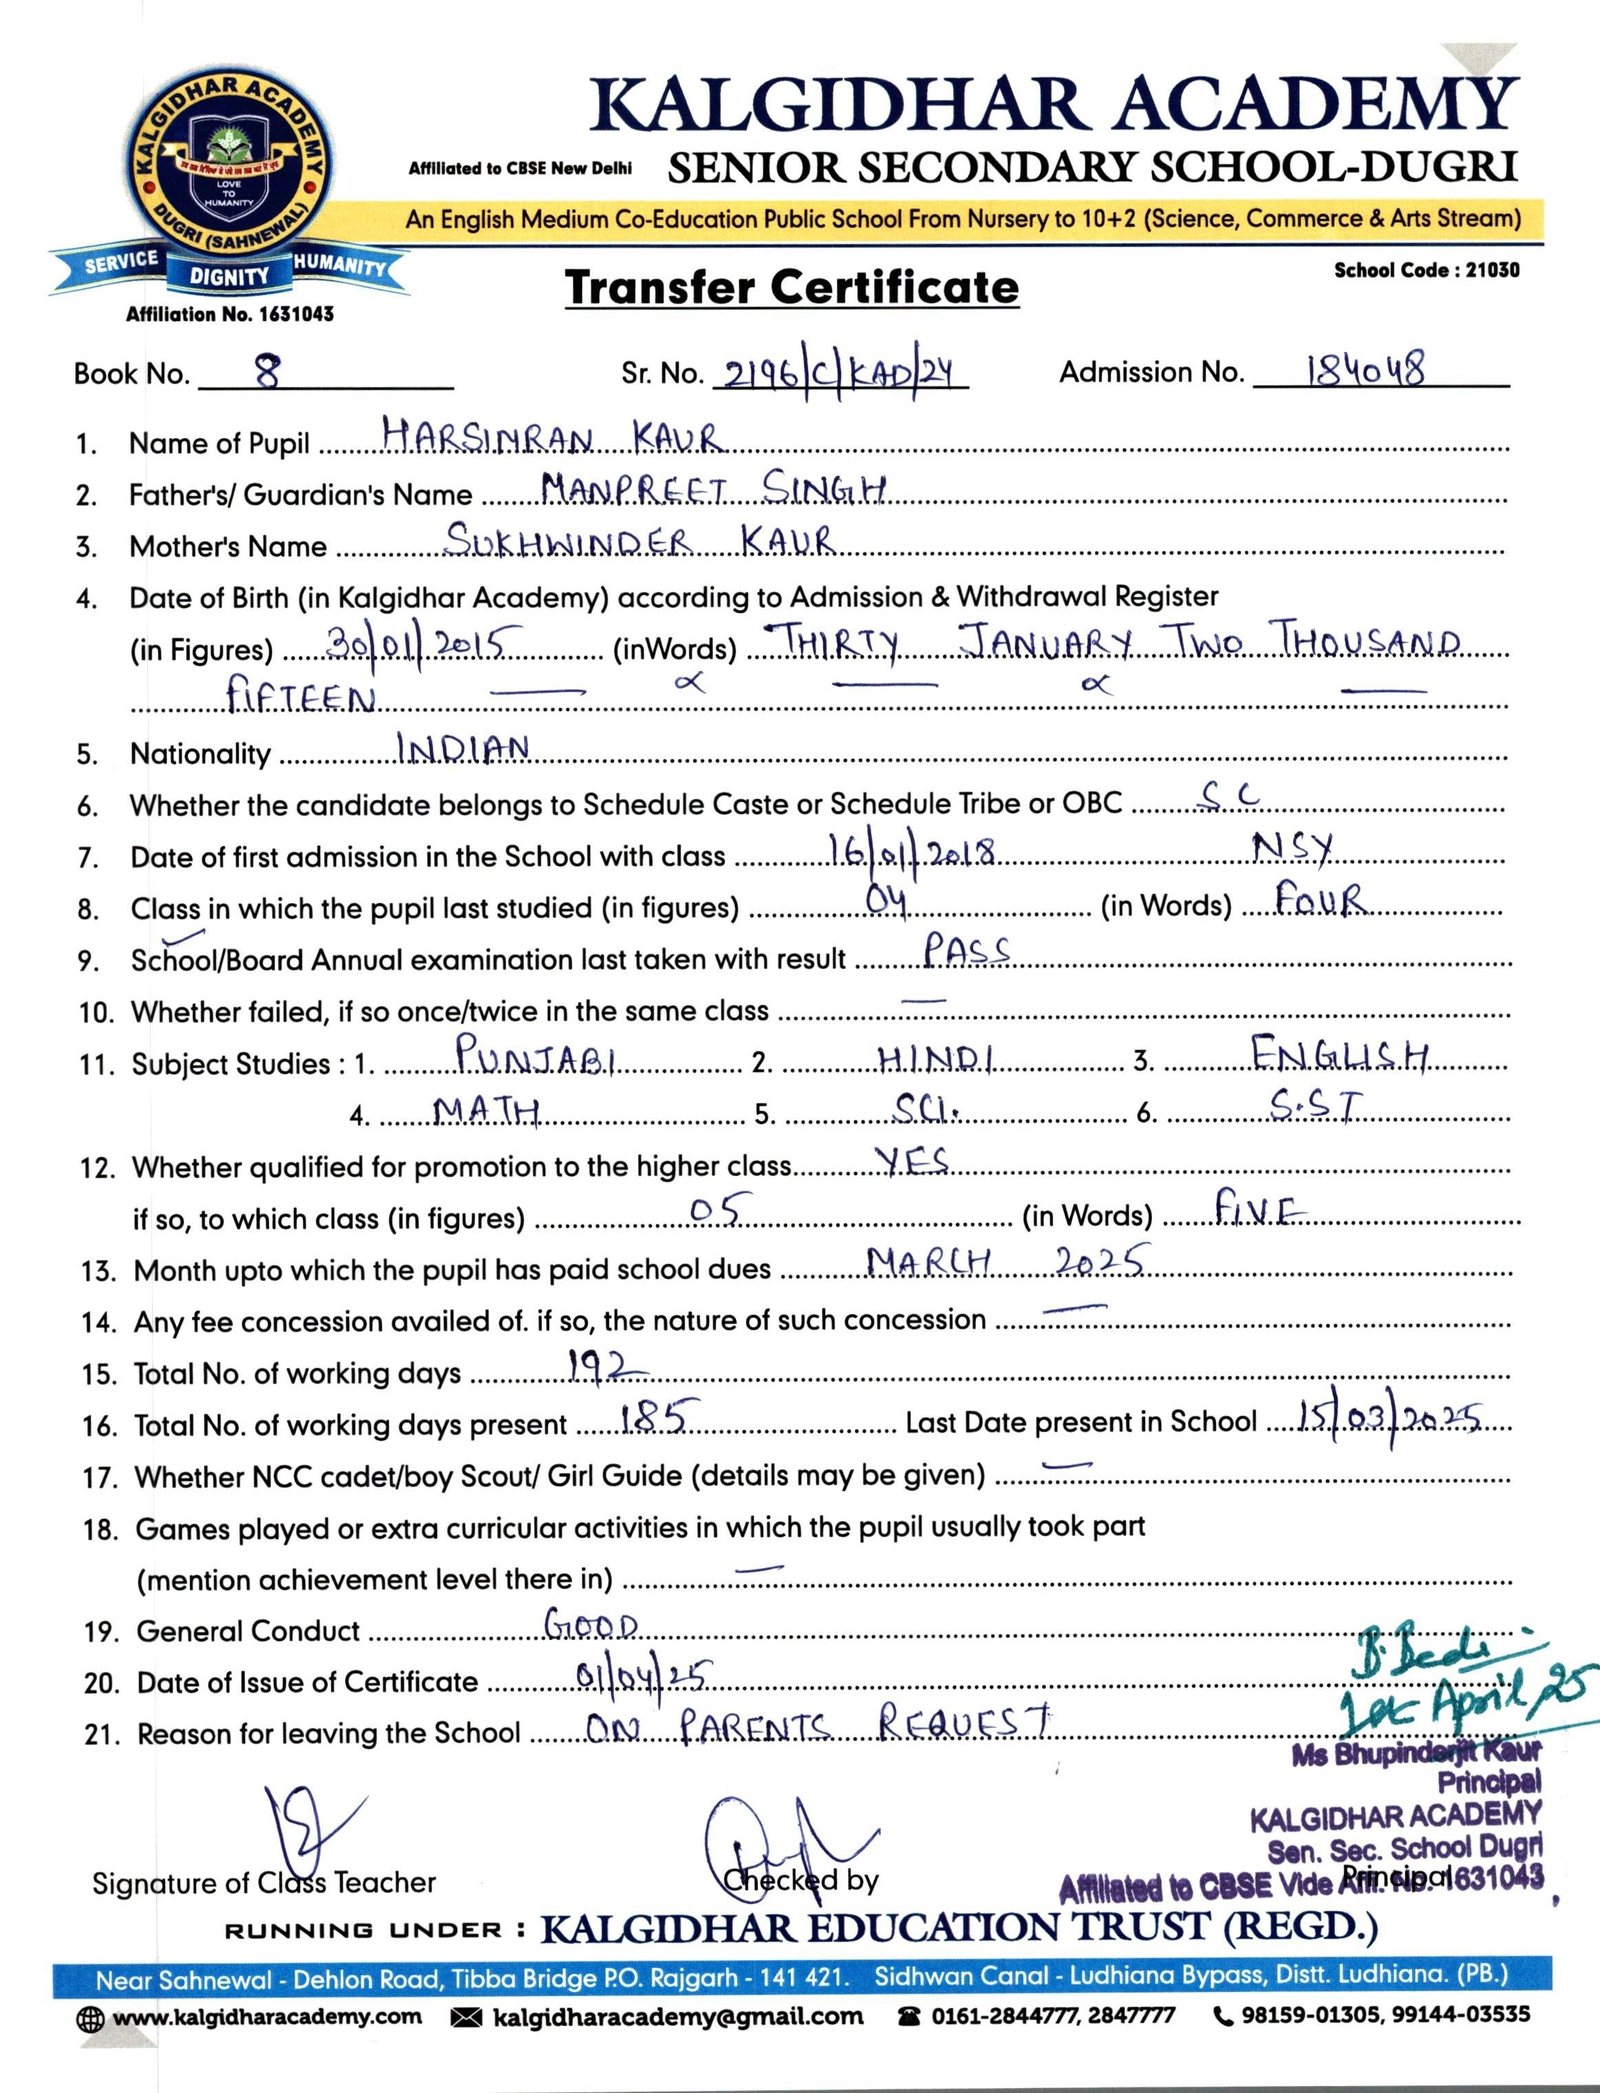 KALGIDHAR ACADEMY
DUGRI (SAHNEWAL)
LOVE
TO
HUMANITY
SERVICE DIGNITY HUMANITY
Affiliation No. 1631043
KALGIDHAR ACADEMY
Affiliated to CBSE New Delhi SENIOR SECONDARY SCHOOL-DUGRI
An English Medium Co-Education Public School From Nursery to 10+2 (Science, Commerce & Arts Stream)
School Code : 21030
Transfer Certificate
Book No. 8 Sr. No. 2196/C/KAD/24 Admission No. 184048
1. Name of Pupil HARSIMRAN KAUR
2. Father's/ Guardian's Name MANPREET SINGH
3. Mother's Name SUKHWINDER KAUR
4. Date of Birth (in Kalgidhar Academy) according to Admission & Withdrawal Register
(in Figures) 30/01/2015 (inWords) THIRTY JANUARY TWO THOUSAND
FIFTEEN
5. Nationality INDIAN
6. Whether the candidate belongs to Schedule Caste or Schedule Tribe or OBC S.C
7. Date of first admission in the School with class 16/01/2018 NSY
8. Class in which the pupil last studied (in figures) 04 (in Words) FOUR
9. School/Board Annual examination last taken with result PASS
10. Whether failed, if so once/twice in the same class —
11. Subject Studies : 1. PUNJABI 2. HINDI 3. ENGLISH
4. MATH 5. SCI. 6. S.ST
12. Whether qualified for promotion to the higher class YES
if so, to which class (in figures) 05 (in Words) FIVE
13. Month upto which the pupil has paid school dues MARCH 2025
14. Any fee concession availed of. if so, the nature of such concession —
15. Total No. of working days 192
16. Total No. of working days present 185 Last Date present in School 15/03/2025
17. Whether NCC cadet/boy Scout/ Girl Guide (details may be given) —
18. Games played or extra curricular activities in which the pupil usually took part
(mention achievement level there in) —
19. General Conduct GOOD
B. Bedi
20. Date of Issue of Certificate 01/04/25
1st April 25
21. Reason for leaving the School ON PARENTS REQUEST
Ms Bhupinderjit Kaur
Principal
KALGIDHAR ACADEMY
Sen. Sec. School Dugri
Affiliated to CBSE Vide Affi. No. 1631043
Signature of Class Teacher Checked by Principal
RUNNING UNDER : KALGIDHAR EDUCATION TRUST (REGD.)
Near Sahnewal - Dehlon Road, Tibba Bridge P.O. Rajgarh - 141 421. Sidhwan Canal - Ludhiana Bypass, Distt. Ludhiana. (PB.)
www.kalgidharacademy.com kalgidharacademy@gmail.com 0161-2844777, 2847777 98159-01305, 99144-03535